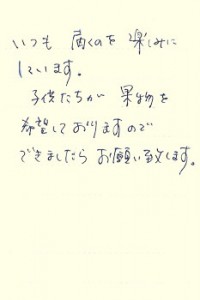 いつも 届くのを 楽しみに
しています。
子供たちが 果物を
希望しておりますので
できましたら お願い致します。